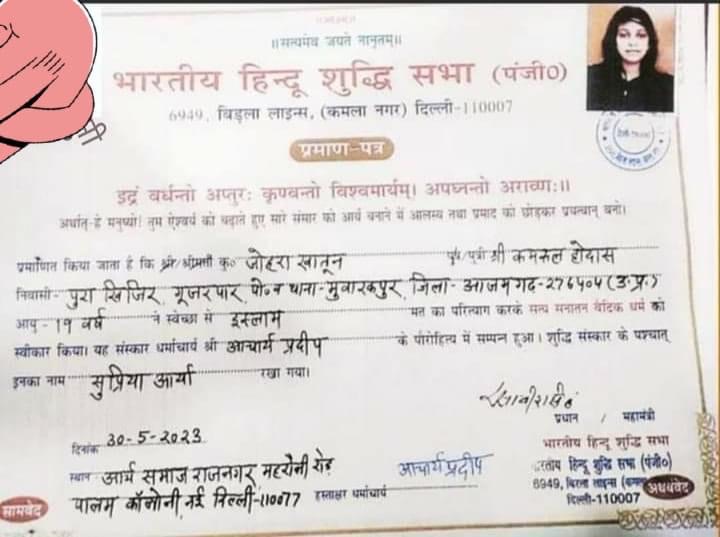 ॥सत्यमेव जयते नानृतम्॥
भारतीय हिन्दू शुद्धि सभा (पंजी०)
6949, बिड़ला लाइन्स, (कमला नगर) दिल्ली-110007
प्रमाण-पत्र
इद्रं वर्धन्तो अप्तुरः कृण्वन्तो विश्वमार्यम्। अपघ्नन्तो अराव्णः॥
अर्थात्-हे मनुष्यो! तुम ऐश्वर्य को बढ़ाते हुए सारे संसार को आर्य बनाने में आलस्य तथा प्रमाद को छोड़कर प्रयत्नवान् बनो।
प्रमाणित किया जाता है कि श्री/श्रीमती कु० जोहरा खातून पुत्र/पुत्री श्री कमरूल होदास
निवासी- पुरा खिजिर, गूजरपार, पो०व थाना-मुबारकपुर, जिला- आजमगढ-276404 (उ.प्र.)
आयु - 19 वर्ष ने स्वेच्छा से इस्लाम मत का परित्याग करके सत्य सनातन वैदिक धर्म को
स्वीकार किया। यह संस्कार धर्माचार्य श्री आचार्य प्रदीप के पौरोहित्य में सम्पन्न हुआ। शुद्धि संस्कार के पश्चात्
इनका नाम सुप्रिया आर्या रखा गया।
प्रधान / महामंत्री
दिनांक 30-5-2023
भारतीय हिन्दू शुद्धि सभा
स्थान आर्य समाज राजनगर महरौनी रोड़
आचार्य प्रदीप
हिन्दू शुद्धि सभा (पंजी०)
पालम कॉलोनी, नई दिल्ली-110077 हस्ताक्षर धर्माचार्य
6949, बिरला लाइन्स
दिल्ली-110007
सामवेद
अथर्ववेद